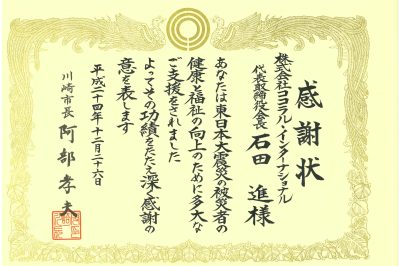 感謝状
株式会社ココラル・インターナショナル
代表取締役会長 石田 進様
あなたは東日本大震災の被災者の
健康と福祉の向上のために多大な
ご支援をされました
よってその功績をたたえ深く感謝の
意を表します
平成二十四年十二月二十六日
川崎市長 阿部孝夫